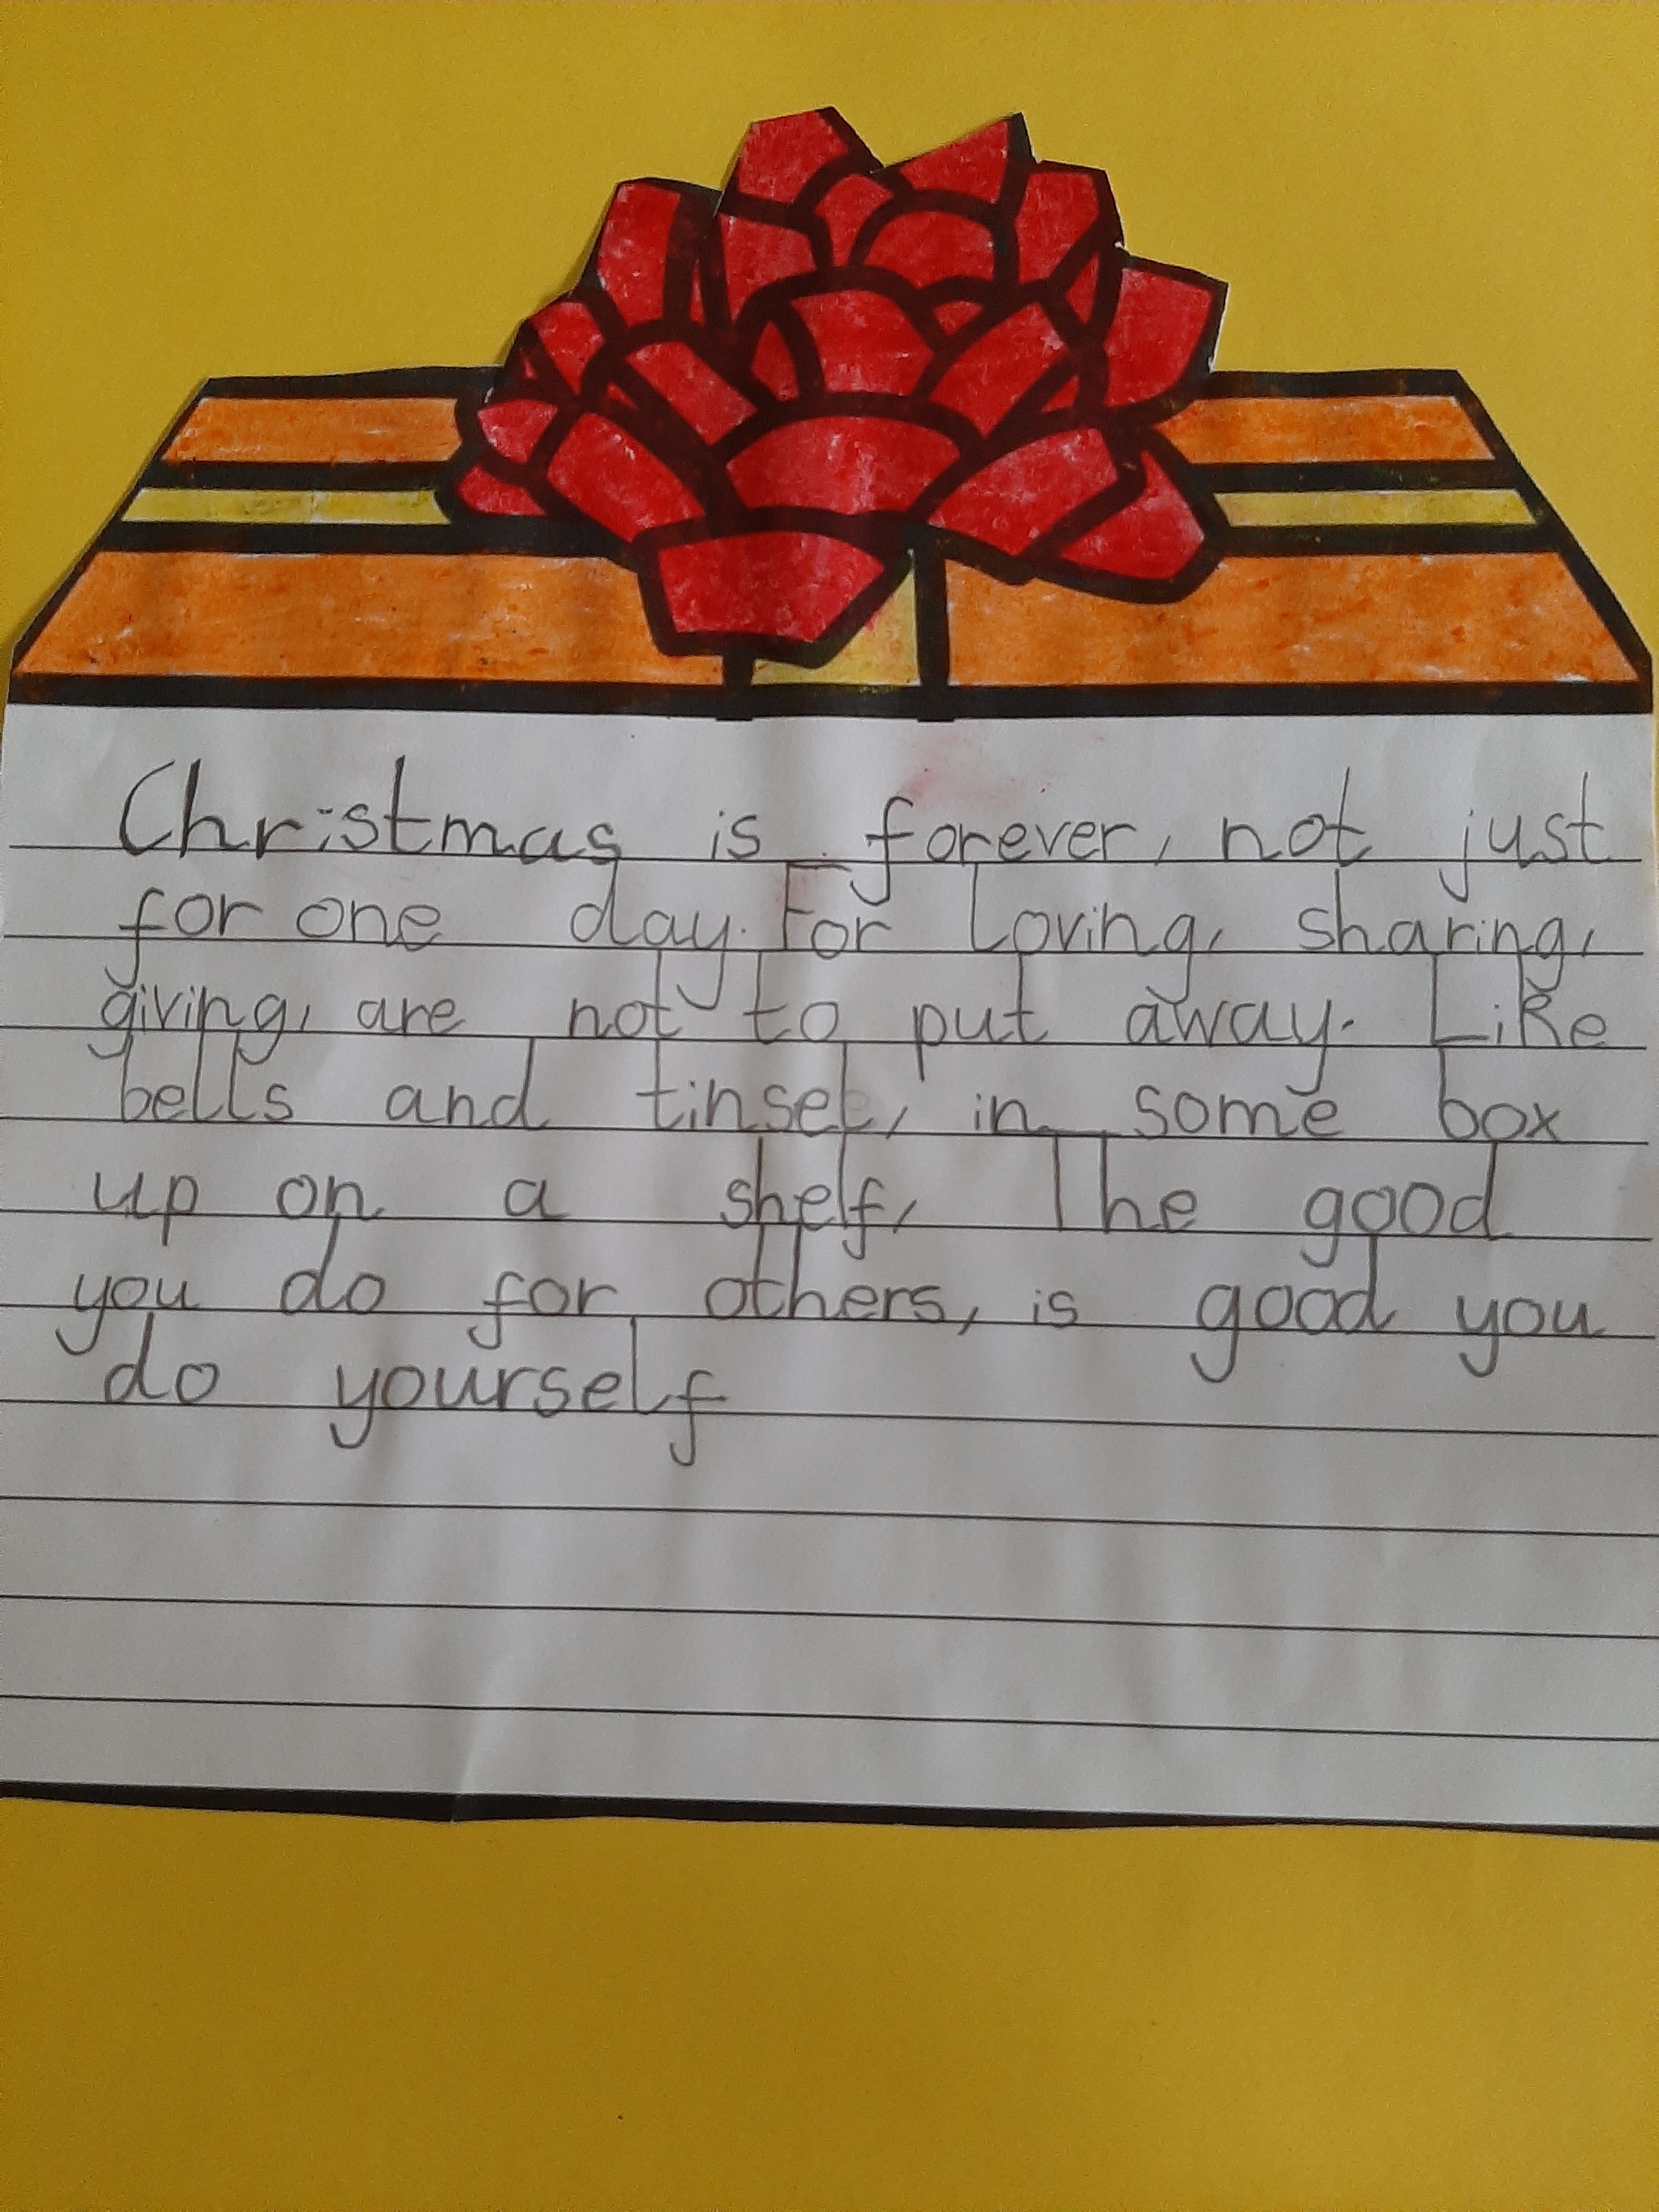 Christmas is forever, not just
for one day. For Loving, sharing,
giving, are not to put away. Like
bells and tinsel, in some box
up on a shelf, The good
you do for others, is good you
do yourself